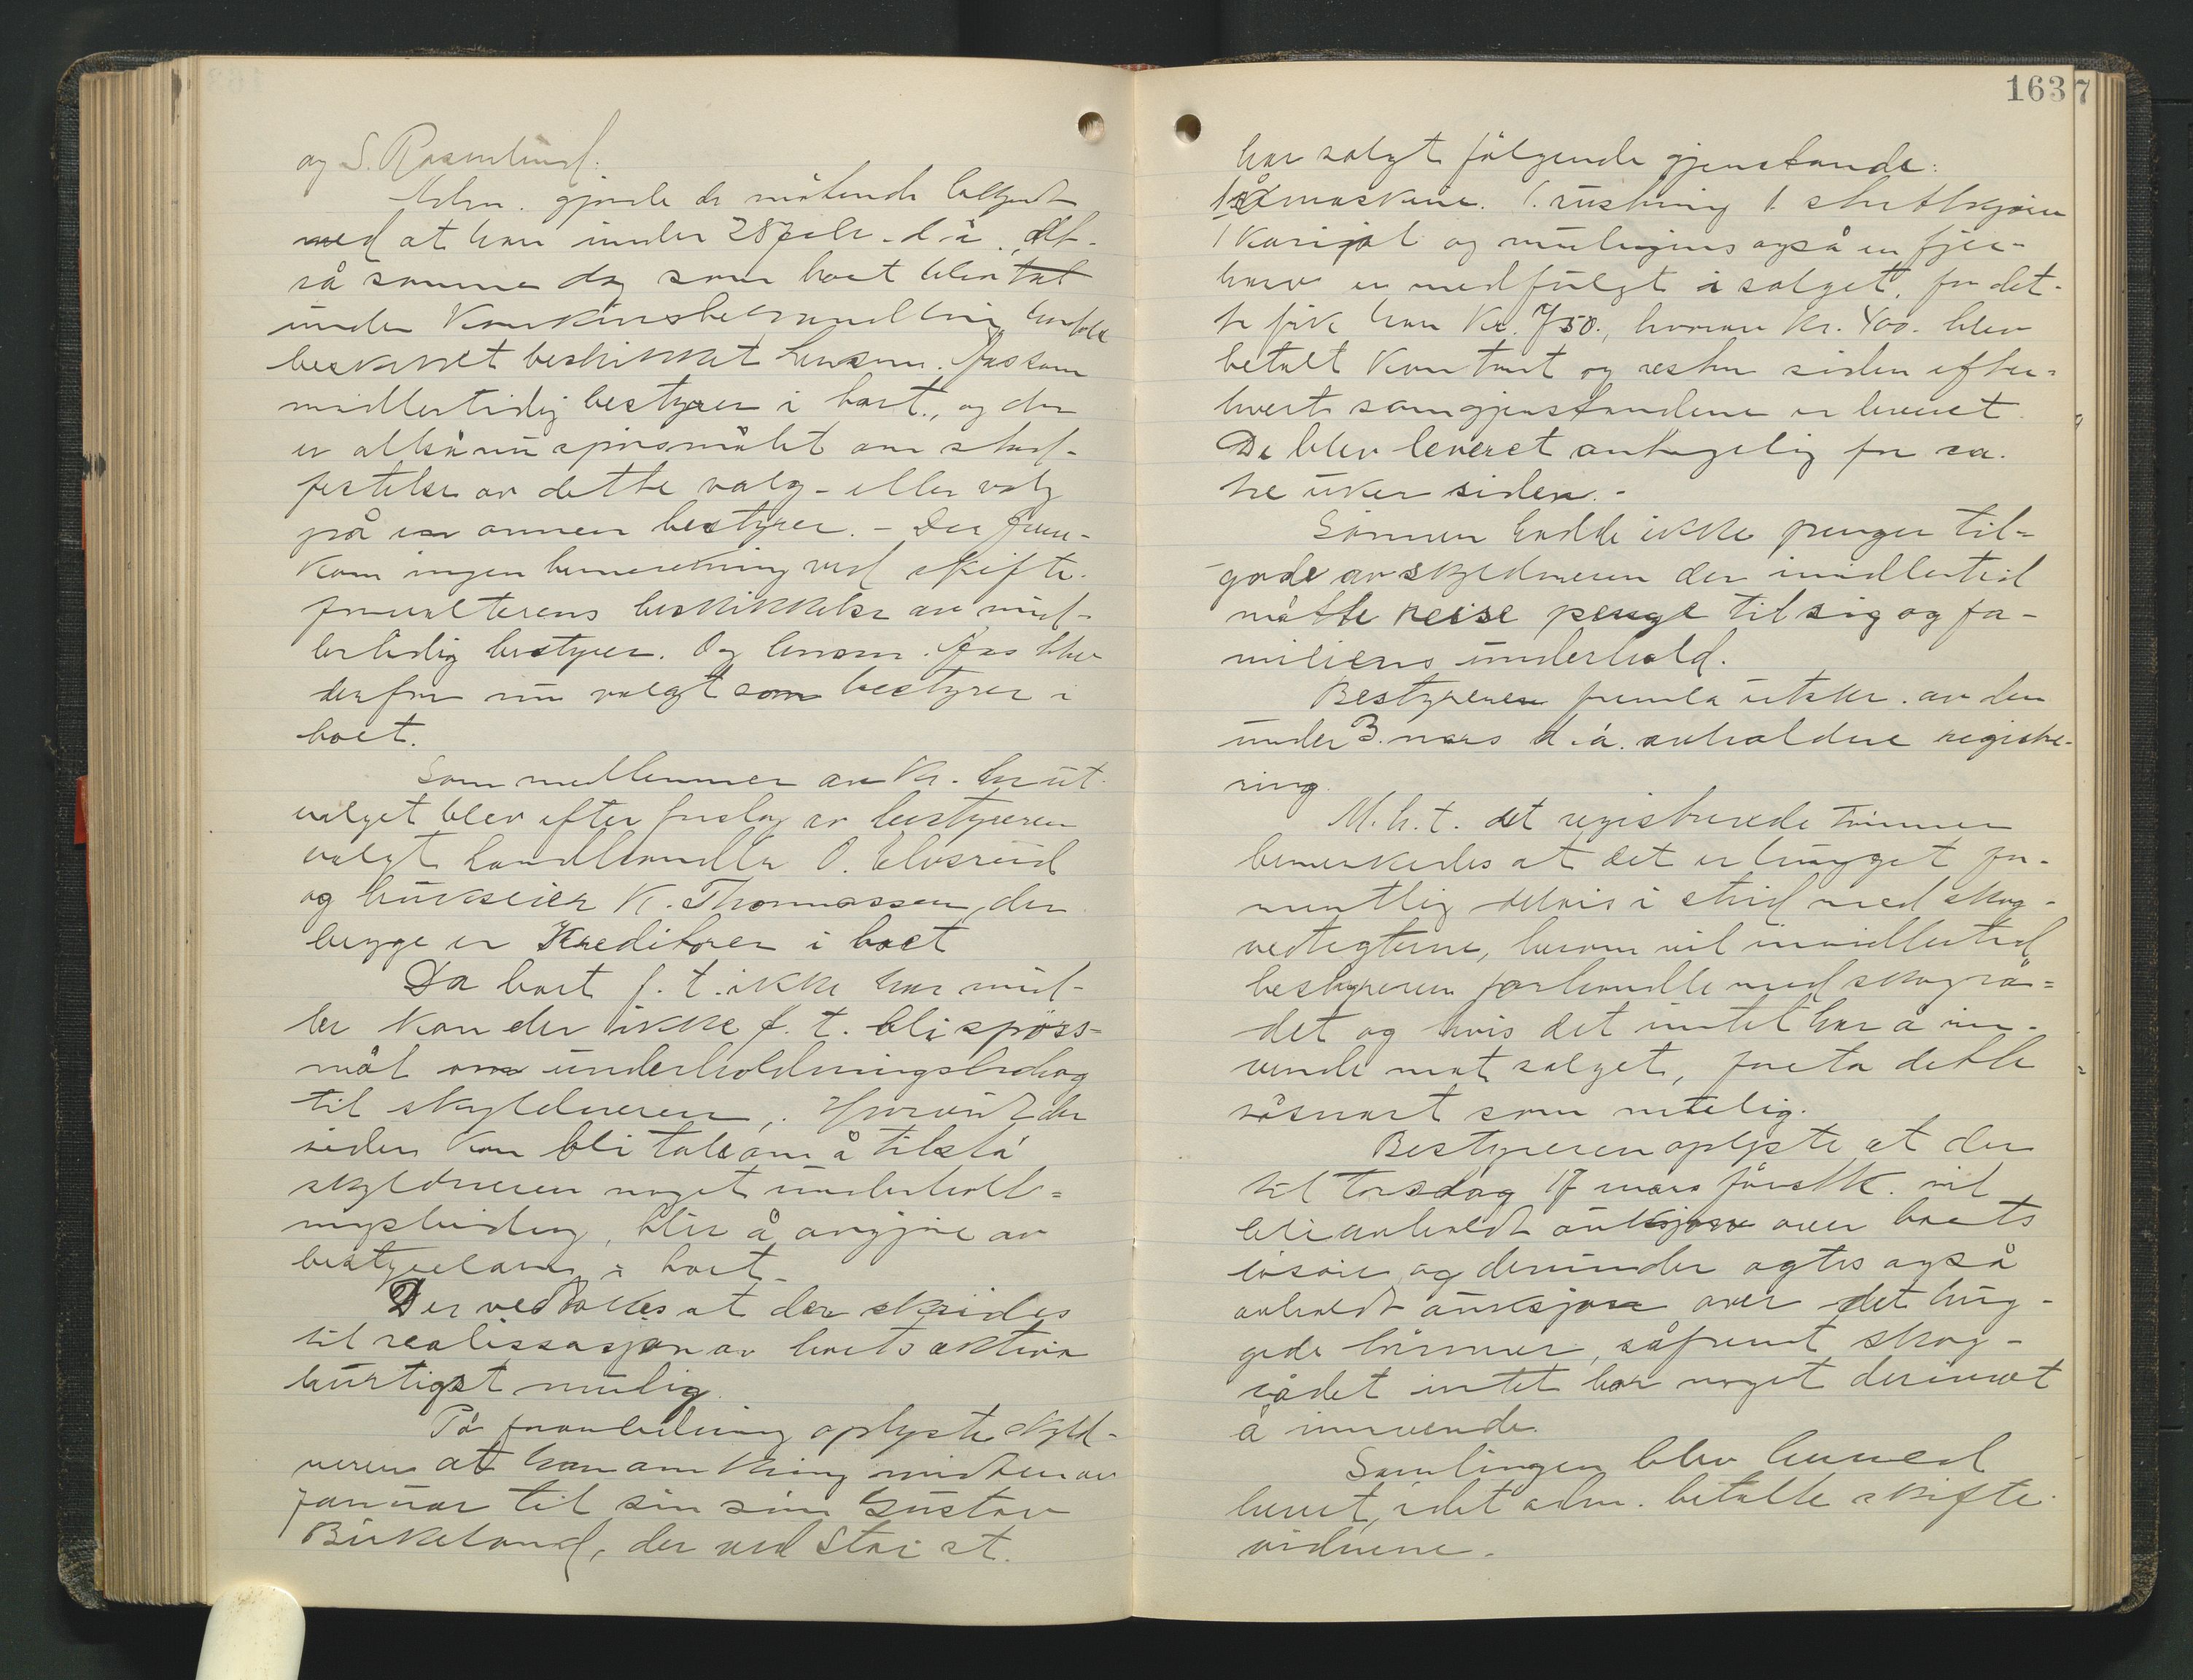 og S. Rosenlund.
Adm. gjorde de møtende bekjendt
med at han under 28 febr. d.å., alt-
så samme dag som boet blev tat
under konkursbehandling
beskikket lensm. Aas som
midlertidig bestyrer i boet, og der
er altså nu spörsmålet om stad-
festelse av dette valg - eller valg
på en annen bestyrer. - Der frem-
kom ingen bemerkning ved skifte-
forvalterens beskikkelse av mid-
lertidig bestyrer. Og lensm. Aas blev
derfor nu valgt som bestyrer i
boet.
Som medlemmer av kr. ut-
valget blev efter forslag av bestyreren
valgt landhandler O. Elvsrud
og brukseier K. Thomassen, der
begge er kreditorer i boet
Da boet f. t. ikke har mid-
ler kan der ikke f. t. bli spörs-
mål om underholdningsbidrag
til skyldneren. Hvorvidt der
siden kan bli tale om å tilstå
skyldneren noget underhold-
ningsbidrag, blir å avgjöre av
bestyrelsen i boet.
Der vedtokes at der skrides
til realissasjon av boets aktiva
hurtigst mulig.
På foranledning oplyste skyld-
neren at han omkring midten av
januar til sin sön Gustav
Birkeland, der ved Stai st.
163 7
har solgt fölgende gjenstande:
1 slåmaskine. 1. 1.
1 karjol og muligens også en fjær-
harv er medfulgt i salget, for det-
te fik han Kr. 750., hvorav kr. 400. blev
betalt kontant og resten siden efter-
hvert som gjenstandene er leveret.
De blev leveret antagelig for ca.
tre uker siden. -
Sönnen hadde ikke penger til-
gode av skyldneren der imidlertid
måtte reise penge til sig og fa-
miliens underhold.
Bestyreren fremla utskr. av den
under 3. mars d.å. avholdne registre-
ring.
M.h.t. det registrerede tömmer
bemerkedes at det er hugget for-
mentlig delvis i strid med skog-
vedtegterne, herom vil imidlertid
bestyreren forhandle med skogrå-
det og hvis det intet har å inn-
vende mot salget, foreta dette
såsnart som mulig.
Bestyreren oplyste at der
til Torsdag 17 mars förstk. vil
bli avholdt auksjon over boets
lösöre og derunder agtes også
avholdt auksjon over det hug-
gede tömmer, såfremt skog-
rådet intet har noget derimot
å innvende.
Samlingen blev hermed
hevet, idet adm. betalte skifte-
vidnene.